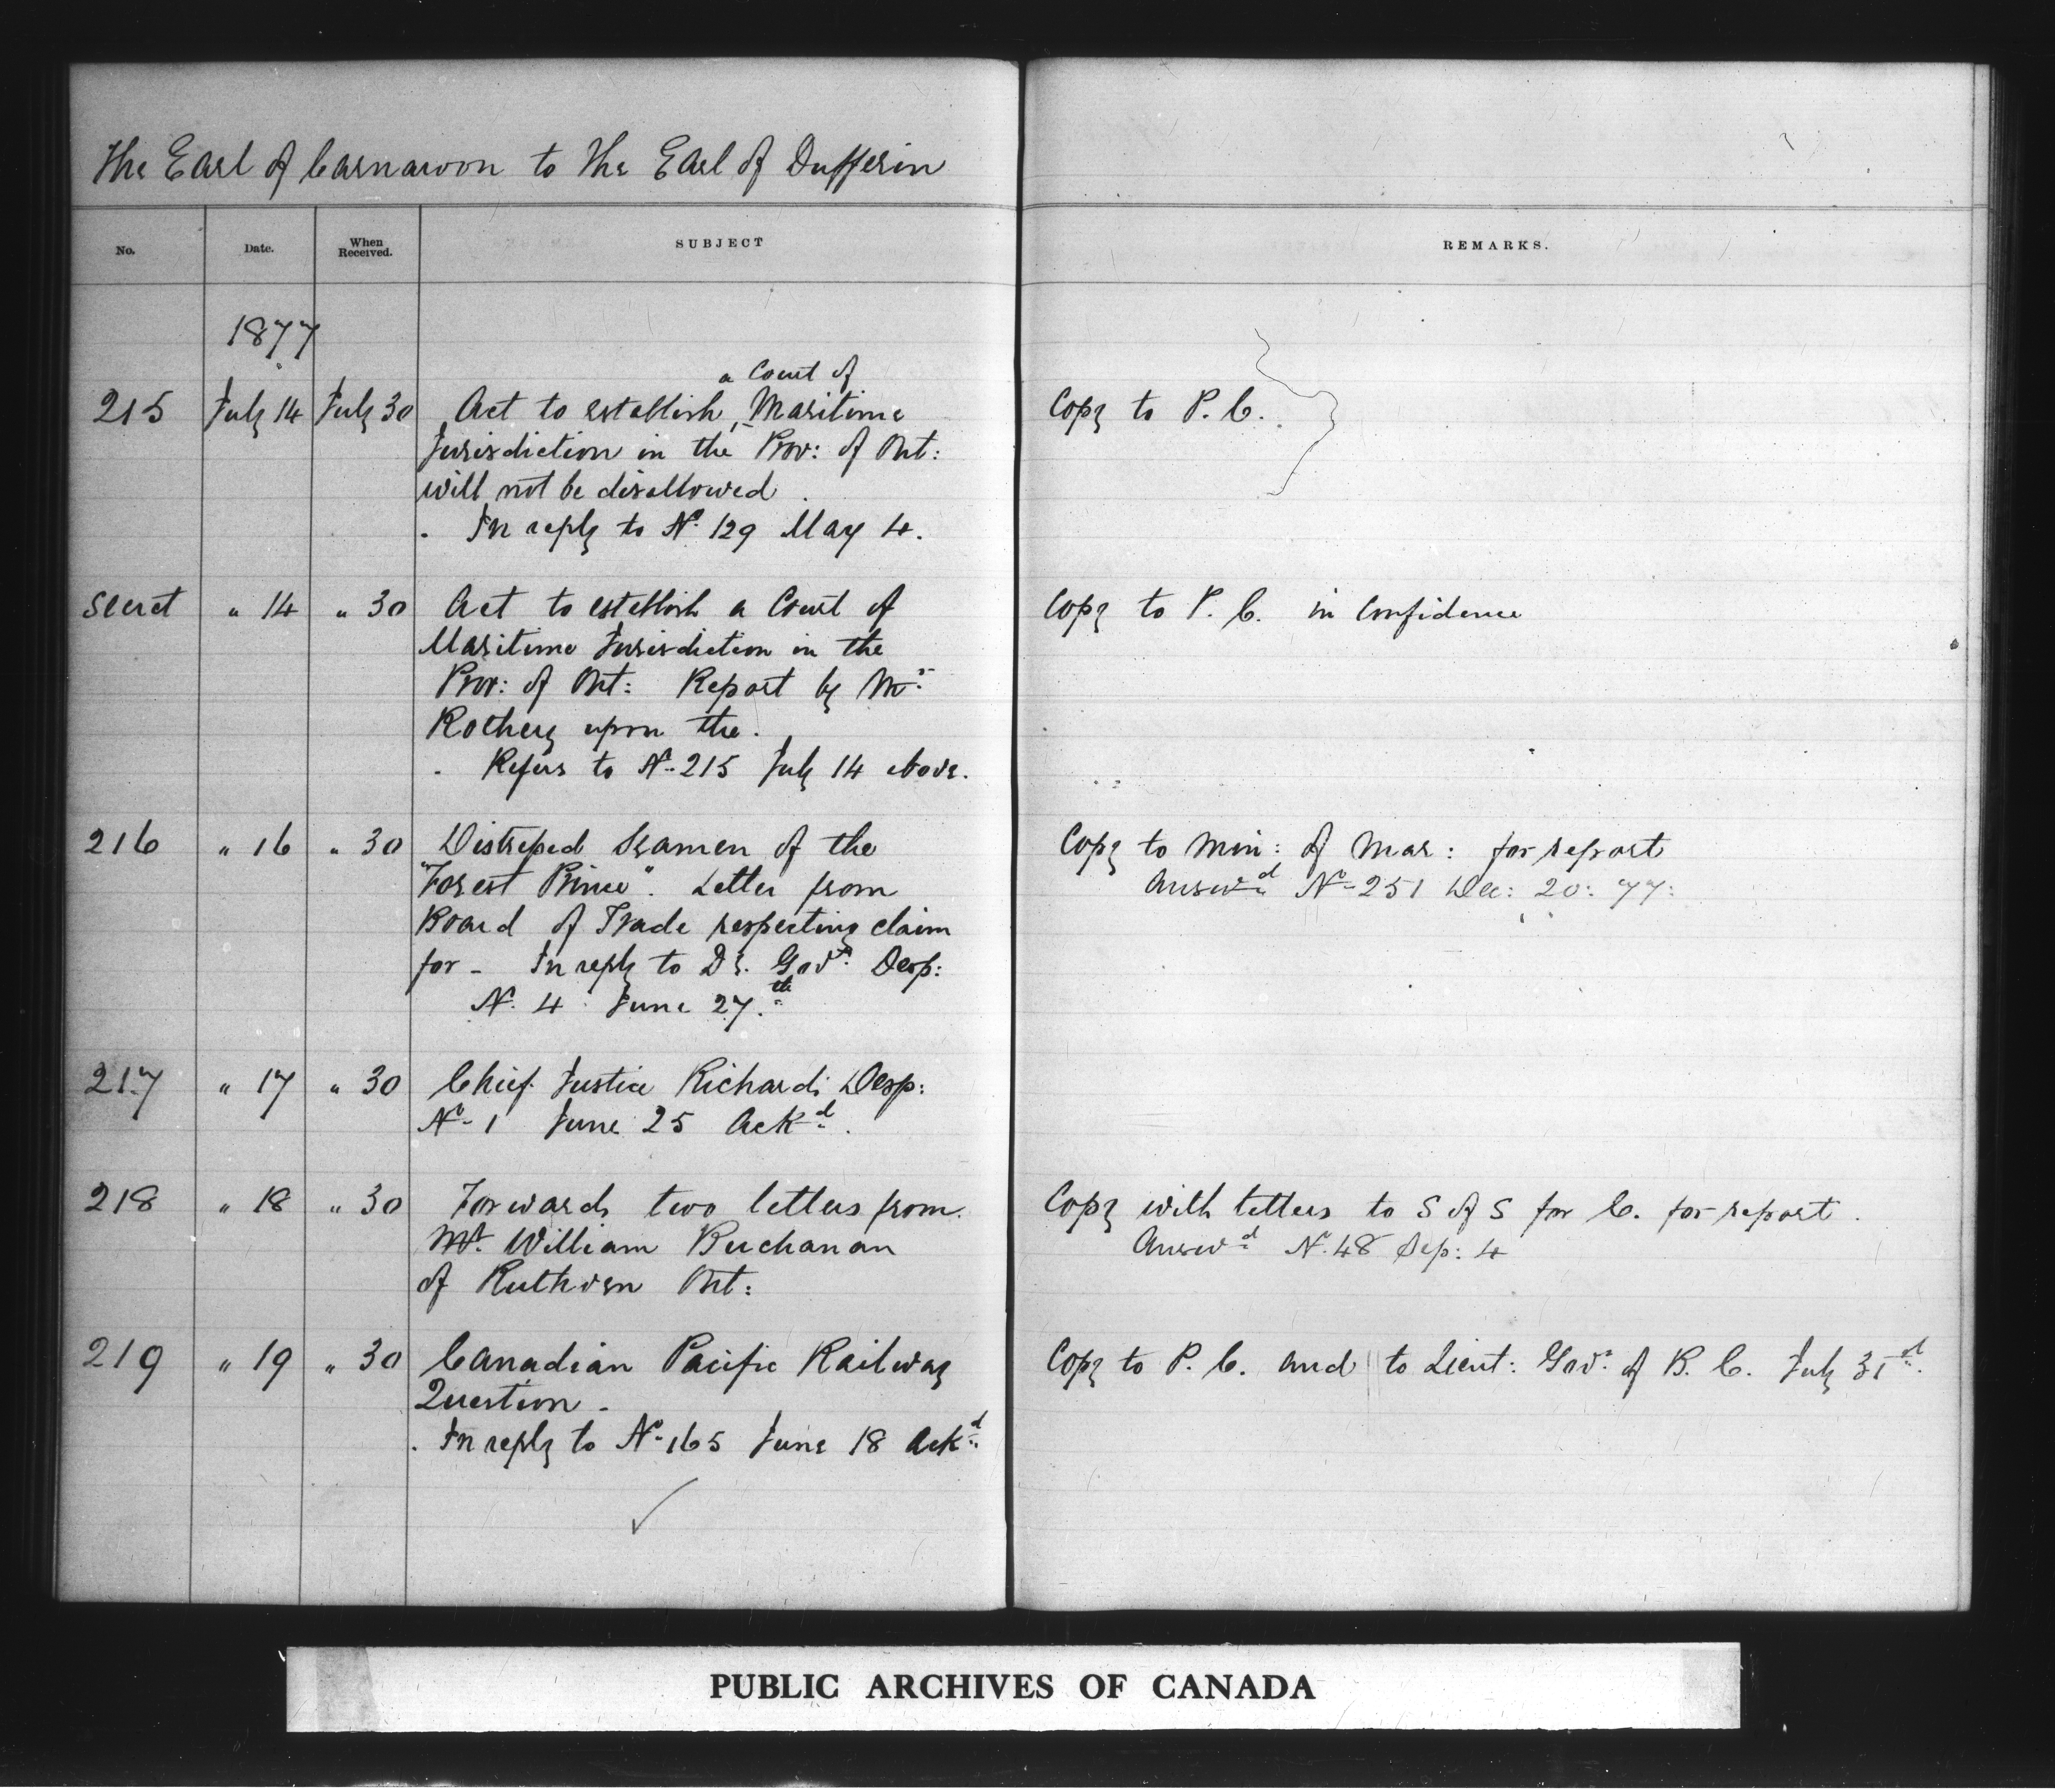 The Earl of Carnarvon to The Earl of Dufferin
No. Date. When Received. SUBJECT REMARKS.
1877
a Court of
215 July 14 July 30 Act to establish Maritime Copy to P. C.
Jurisdiction in the Prov: of Ont:
will not be disallowed.
In reply to No. 129 May 4.
Secret " 14 " 30 Act to establish a Court of Copy to P. C. in Confidence
Maritime Jurisdiction in the
Prov: of Ont: Report by Mr.
Rothery upon the.
Refers to No. 215 July 14 above.
216 " 16 " 30 Distressed Seamen of the Copy to Min: of Mar: for report
"Forest Prince". Letter from Answd No. 251 Dec: 20: 77:
Board of Trade respecting claim
for - In reply to Dy. Govr. Desp:
No. 4 June 27.th
217 " 17 " 30 Chief Justice Richards Desp:
No. 1 June 25 Ackd.
218 " 18 " 30 Forwards two letters from Copy with letters to S of S for C. for report.
Mr. William Buchanan Answd No. 48 Sep: 4
of Ruthven Ont:
219 " 19 " 30 Canadian Pacific Railway Copy to P. C. and to Lieut: Govr. of B. C. July 31st.
Question -
In reply to No. 165 June 18 Ackd.
PUBLIC ARCHIVES OF CANADA